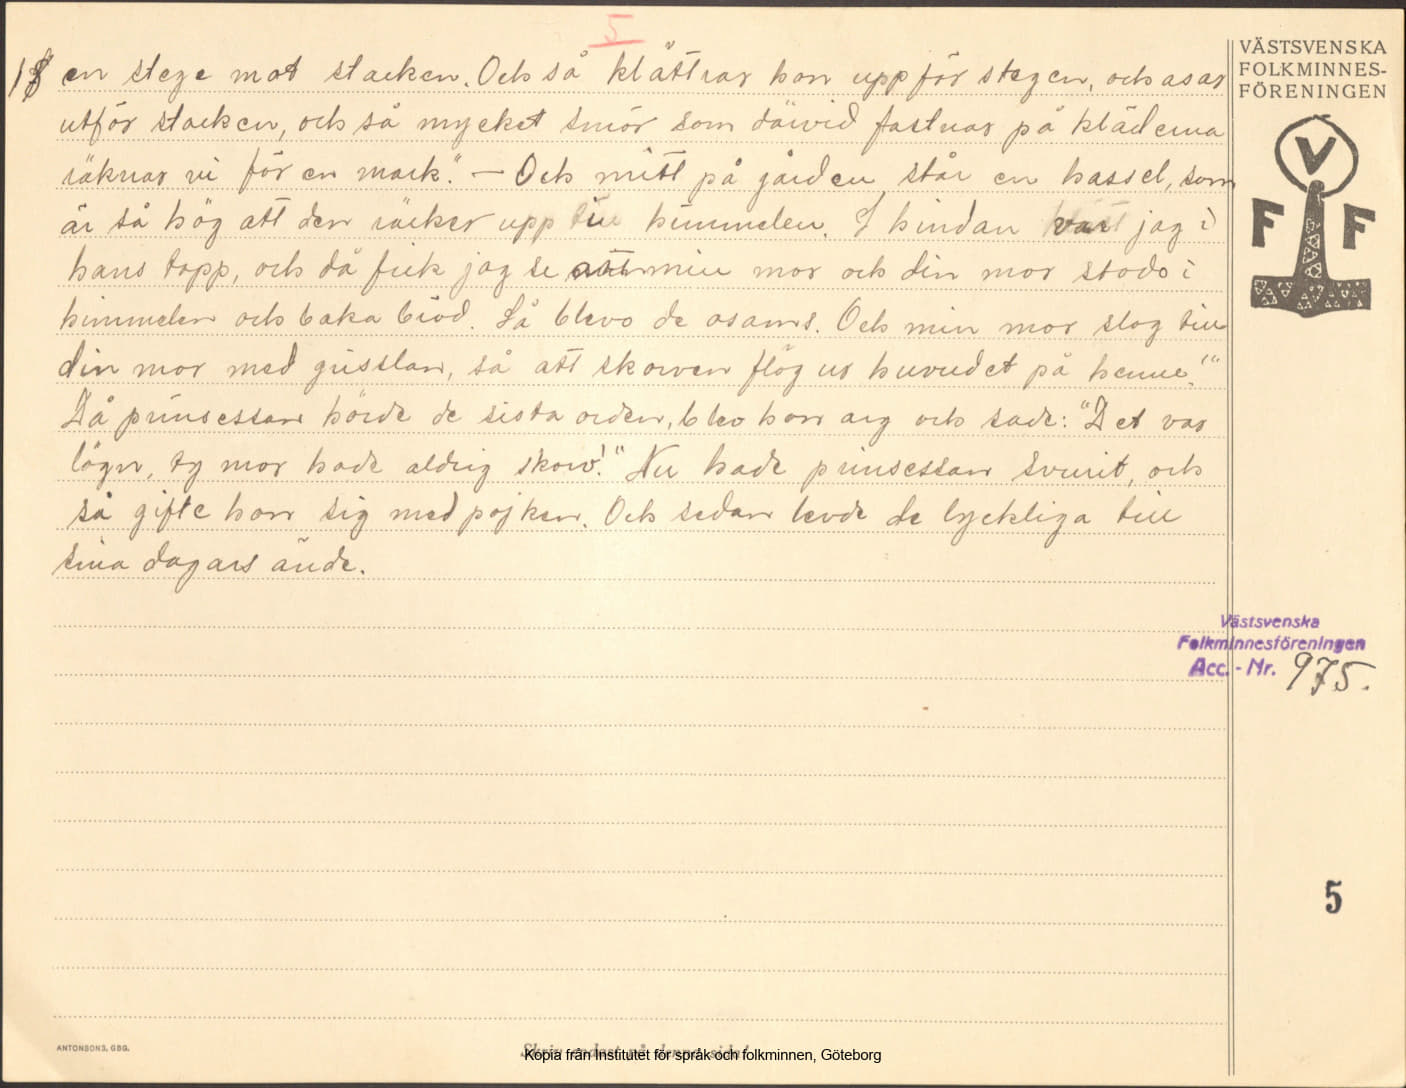 5
en stege mot stacken. Och så klättrar hon uppför stegen, och asar
utför stacken, och så mycket smör som därvid fastnar på kläderna
räknar vi för en mark." — Och mitt på gården står en hassel, som
är så hög att den räcker upp till himmelen. I hindan var jag i
hans topp, och då fick jag se att min mor och din mor stodo i
himmelen och baka bröd. Så blevo de osams. Och min mor slog till
din mor med grisslan, så att skorven flög ur huvudet på henne!"
Då prinsessan hörde de sista orden, blev hon arg och sade: "Det var
lögn, ty mor hade aldrig skorv!" Nu hade prinsessan svurit, och
så gifte hon sig med pojken. Och sedan levde de lyckliga till
sina dagars ände.
VÄSTSVENSKA
FOLKMINNES-
FÖRENINGEN
V
F F
Västsvenska
Folkminnesföreningen
Acc. - Nr. 975.
5
ANTONSONS, GBG.
Skriv endast på denna sida!
Kopia från Institutet för språk och folkminnen, Göteborg